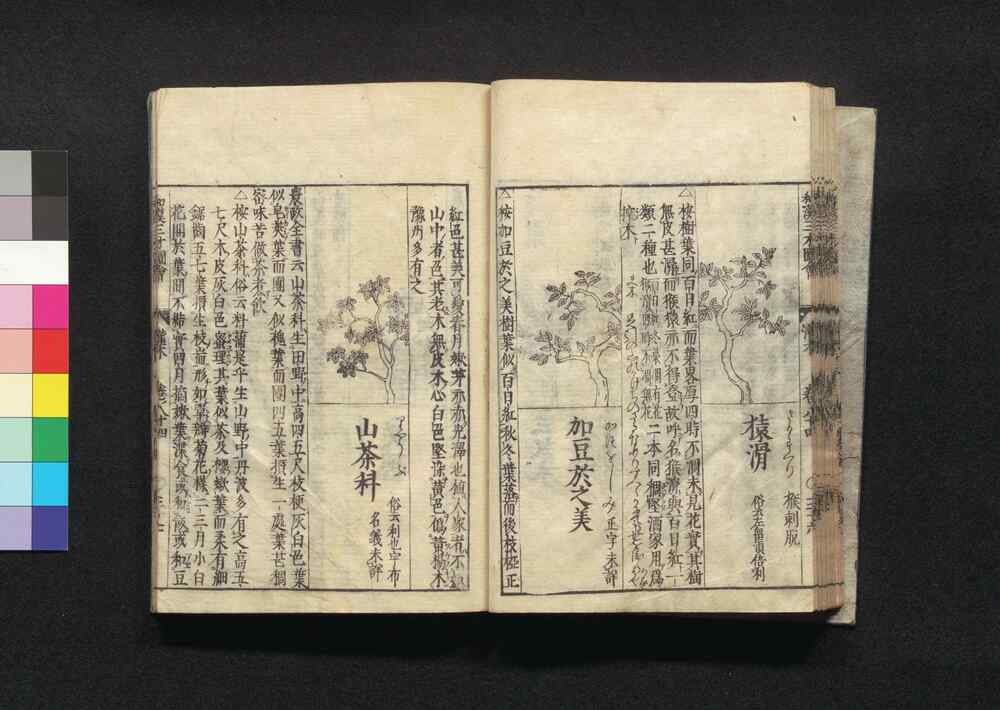 猿滑
さるすべり
猴刺脱
俗云左留須倍利
△桉樹葉同百日紅而葉畧厚四時不凋未見花實其樹
無皮甚滑而猴猿亦不得登故呼名猴滑與百日紅一
類二種也
二本同禢堅酒家用為
搾木
加豆於之美
かつをしみ
正字未詳
△桉加豆於之美樹葉似百日紅秋冬葉落而後枝極正
紅色甚美可愛春月嫩芽亦赤光澤也植人家者不
山中者色其老木無皮木心白色堅染黃色偽黃楊木
豫州多有之
山茶科
りやうぶ
俗云利也宇布
名義未詳
農政全書云山茶科生田野中高四五尺枝梗灰白色葉
似皂莢葉而團又似槐葉而團四五葉攅生一處葉甚稠
密味苦做茶煮飲
△桉山茶科俗云料蒲是乎生山野中丹波多有之高五
七尺木皮灰白色宻理其葉似茶及櫻嫩葉而柔有細
鋸齒五七葉攅生枝嵓形如單瓣菊花樣二三月小白
花開於葉間不結實四月摘嫩葉
和漢三才圖會
卷八十四